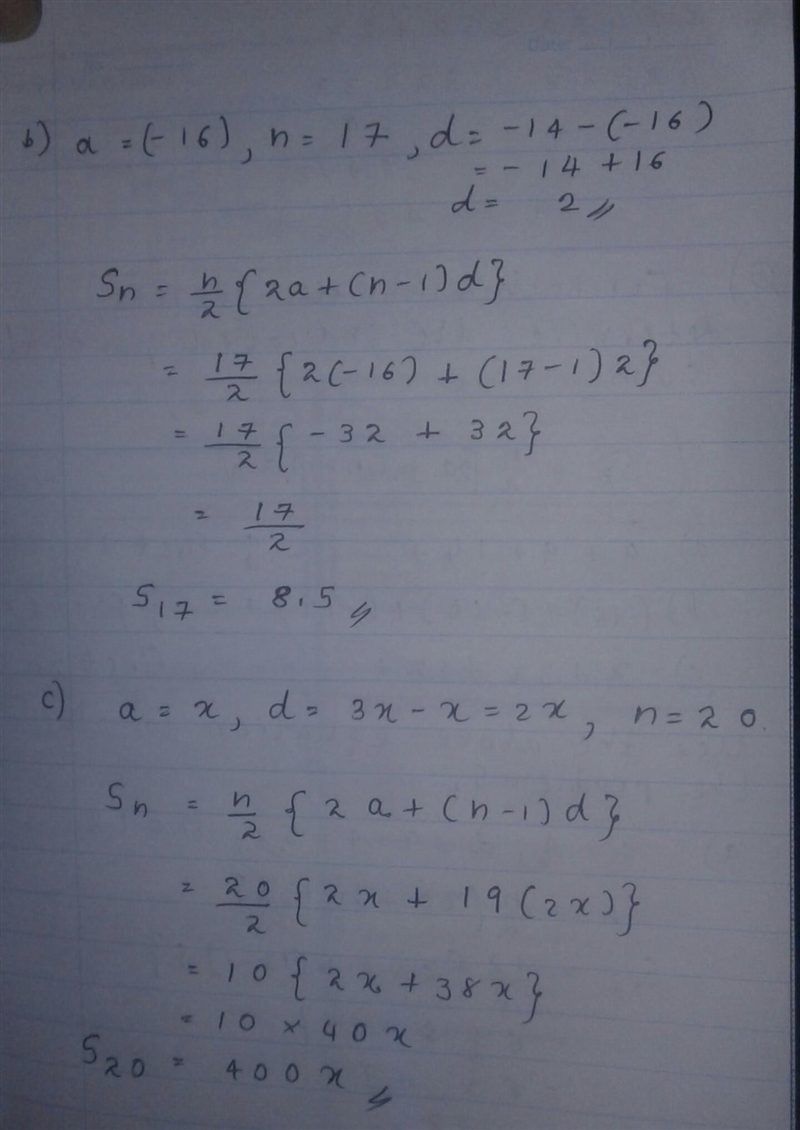 b) a = (-16), n = 17, d = -14 - (-16)
= - 14 + 16
d = 2
Sn = n/2 { 2a + (n - 1) d}
= 17/2 { 2(-16) + (17-1) 2}
= 17/2 { - 32 + 32}
= 17/2
S17 = 8.5
c) a = x, d = 3x - x = 2x, n = 20.
Sn = n/2 { 2a + (n-1) d}
= 20/2 { 2x + 19 (2x)}
= 10 { 2x + 38x}
= 10 × 40x
S20 = 400x